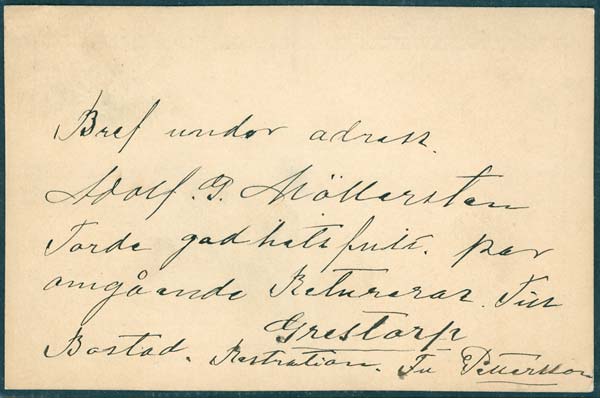 Bref under adress.
Adolf. G. Möllersten
Torde godhetsfullt. per
omgående Retureras. Till
Grestorp
Bostad. Restration. Fu Pettersson